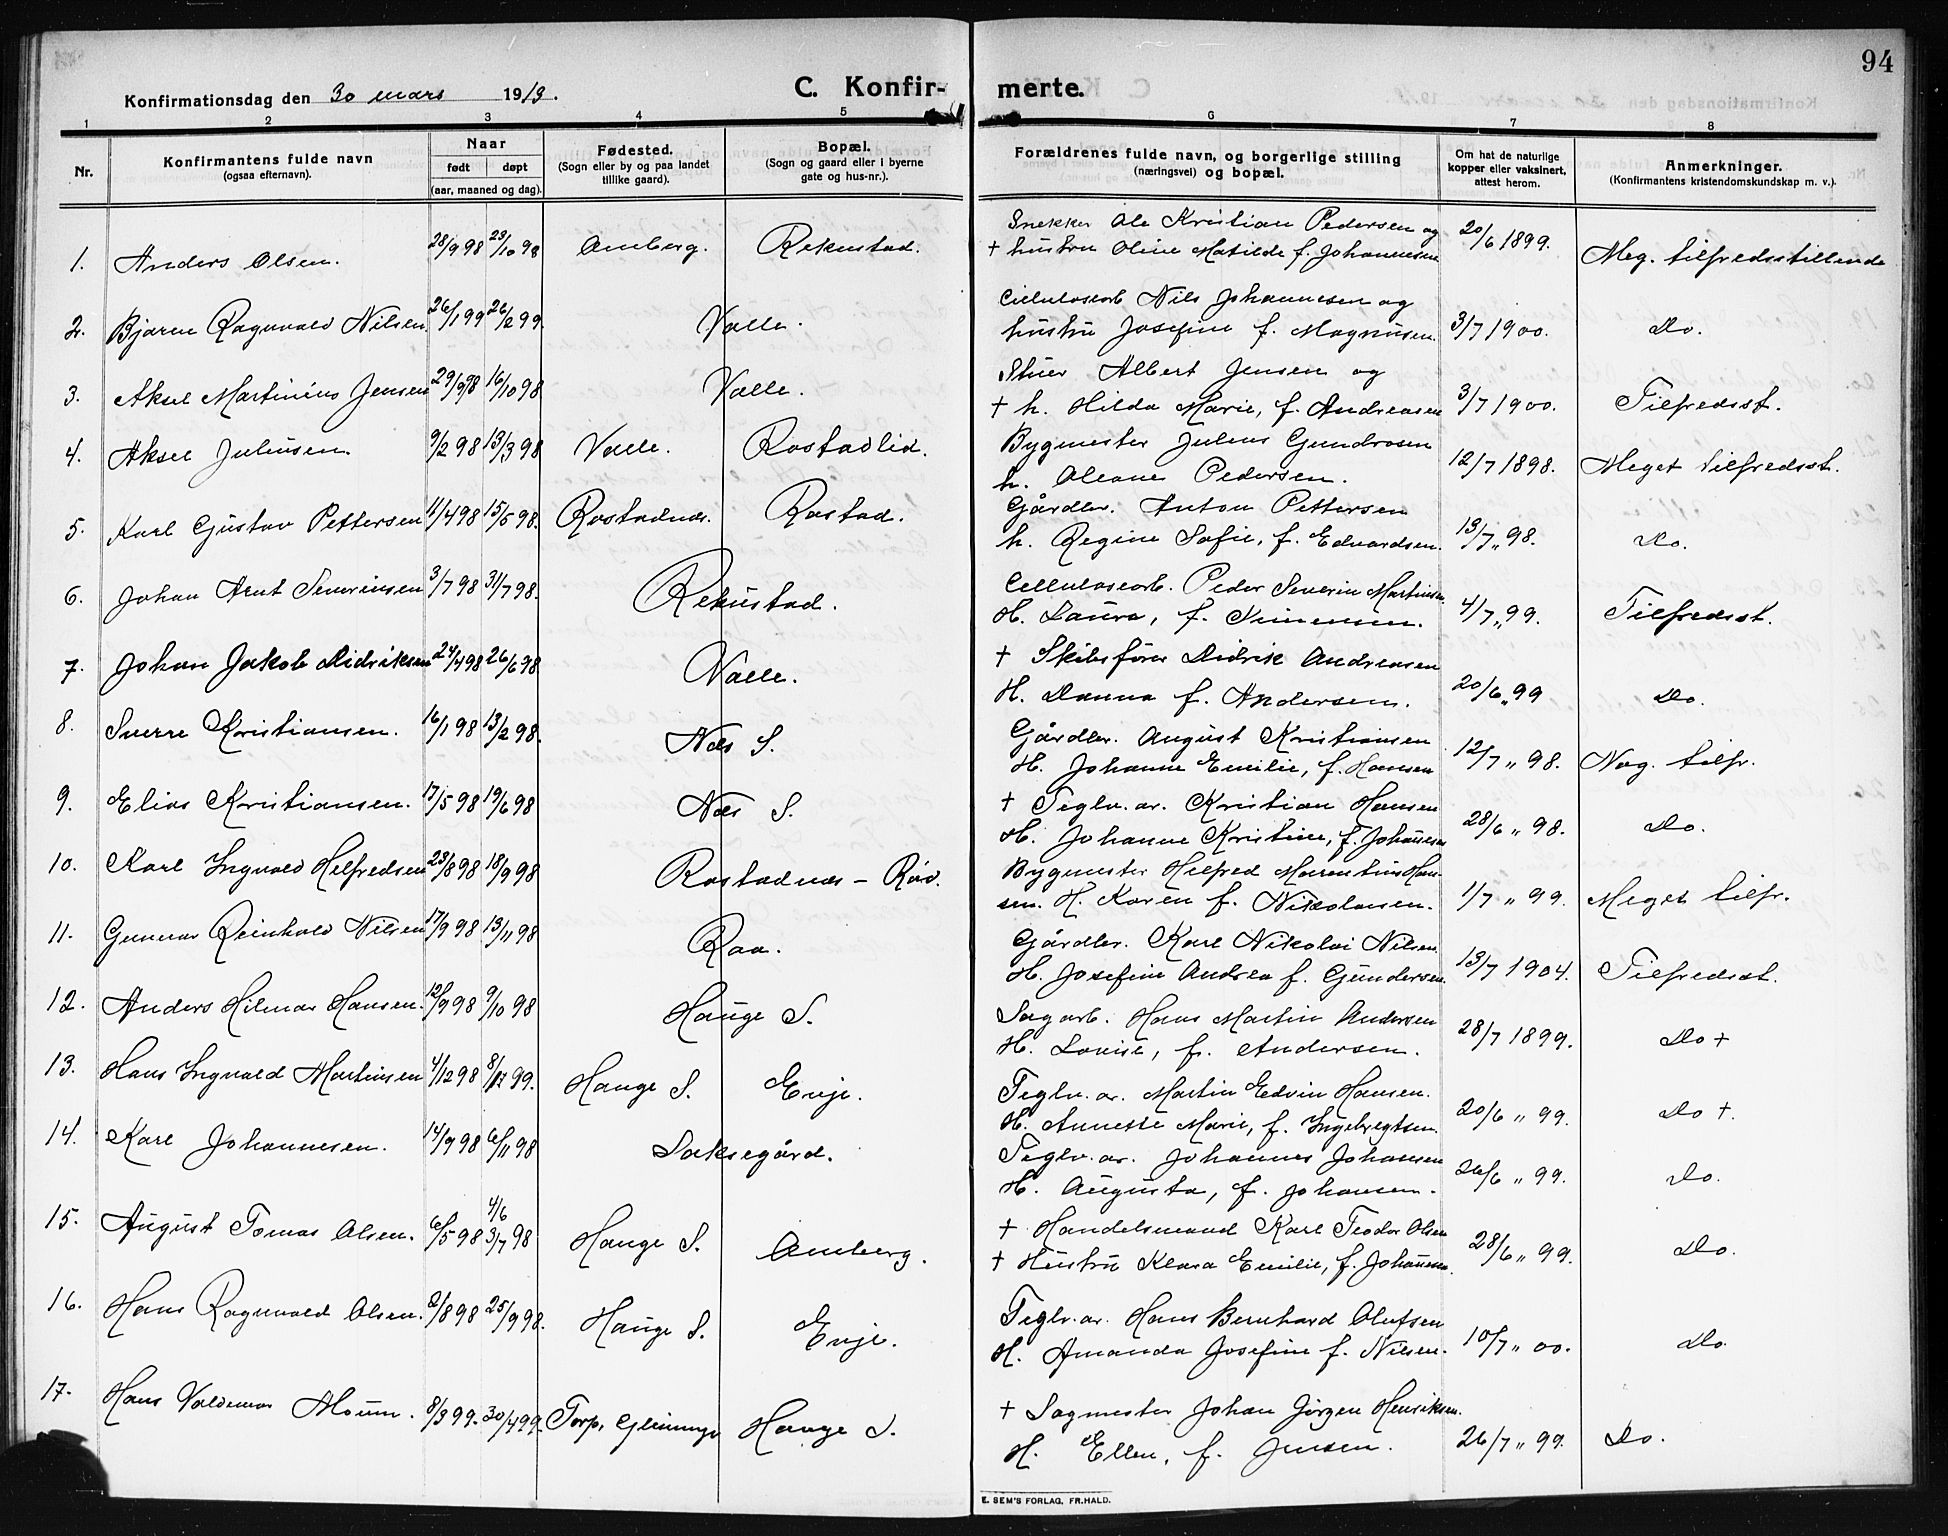 94
Konfirmationsdag den 30 mars 1913.
C. Konfir- merte.
1 2 3 4 5 6 7 8
Nr.
Konfirmantens fulde navn
(ogsaa efternavn).
Naar
født døpt
(aar, maaned og dag).
Fødested.
(Sogn eller by og paa landet
tillike gaard).
Bopæl.
(Sogn og gaard eller i byerne
gate og hus-nr.).
Forældrenes fulde navn, og borgerlige stilling
(næringsvei) og bopæl.
Om hat de naturlige
kopper eller vaksinert,
attest herom.
Anmerkninger.
(Konfirmantens kristendomskundskap m. v.).
Snekker Ole Kristian Pedersen og
1. Anders Olsen. 28/9 98 23/10 98 Amberg. Rekustad. † hustru Oline Matilde f. Johannesen 20/6 1899. Meg. tilfredsstillende
Cellulosearb Nils Johannesen og
2. Bjarne Ragnvald Nilsen 26/1 99 26/2 99. Valle. hustru Josefine f. Magnusen. 3/7 1900. Do.
Stuer Albert Jensen og
3. Aksel Martinius Jensen 29/9 98 16/10 98 Valle. † h. Hilda Marie, f. Andreasen 3/7 1900. Tilfredsst.
Bygmester Julius Gundrosen
4. Aksel Juliusen 9/2 98 13/3 98 Valle. Rostadlid. h. Oleane Pedersen. 12/7 1898. Meget tilfredsst.
Gårdbr. Anton Pettersen
5. Karl Gustav Pettersen 11/4 98 15/5 98. Rostadnes. Rostad. h. Regine Sofie, f. Edvardsen. 13/7 „ 98. Do.
Cellulosearb. Peder Severin Martinsen
6. Johan Arnt Severinsen 3/7 98 31/7 98. Rekustad. H. Laura, f. 4/7 „ 99. Tilfredsst.
† Skibsfører Didrik Andreasen
7. Johan Jakob Didriksen 24/4 98 26/6 98 Valle. H. Danna f. Andersen. 20/6 „ 99 Do.
Gårdbr. August Kristiansen
8. Sverre Kristiansen. 16/1 98 13/2 98. Næs S. H. Johanne Emilie, f. Hansen 12/7 „ 98. Nog. tilfr.
† Teglv. ar. Kristian Hansen
9. Elias Kristiansen. 17/5 98 19/6 98 Næs S. H. Johanne Kristine, f. Johansen 28/6 „ 98. Do.
Bygmester Hilfred Marentius Han-
10. Karl Ingvald Hilfredsen 23/8 98 18/9 98 Rostadnæs - Röd. sen. H. Karen f. Nikolaisen. 1/7 „ 99. Meget tilfr.
Gårdbr. Karl Nikolai Nilsen
11. Gunnar Reinhold Nilsen 17/9 98 13/11 98 Raa. H. Josefine Andrea f. Gundersen. 13/7 1904. Tilfredsst.
Sagarb. Hans Martin Andersen
12. Anders Hilmar Hansen. 12/9 98 9/10 98 Hauge S. H. Lovise, f. Andersen. 28/7 1899. Do +
Teglv. ar. Martin Edvin Hansen.
13. Hans Ingvald Martinsen 4/12 98 8/ 99. Hauge S. Evje. H. Annette Marie, f. Ingebregtsen. 20/6 „ 99. Do +.
Teglv. ar. Johannes Johansen
14. Karl Johannesen. 14/9 98 6/11 98 Laksegård. H. Augusta, f. Johansen. 26/6 „ 99. Do.
4/6 † Handelsmand Karl Teodor Olsen
15. August Tomas Olsen. 6/5 98 3/7 98 Hauge S. Amberg. † Hustru Klara Emilie, f. Johansen. 28/6 „ 99. Do.
Teglv. ar. Hans Bernhard Olufsen
16. Hans Ragnvald Olsen. 2/8 98 25/9 98. Hauge S. Evje. H. Amanda Josefine f. Nilsen. 10/7 „ 00. Do.
† Sagmester Johan Jørgen Henriksen.
17. Hans Valdemar Moum. 8/3 99. 30/4 99. Torp, Glemminge Hauge S. H. Ellen, f. Jensen. 26/7 „ 99. Do.
E. SEM'S FORLAG, FR.HALD.